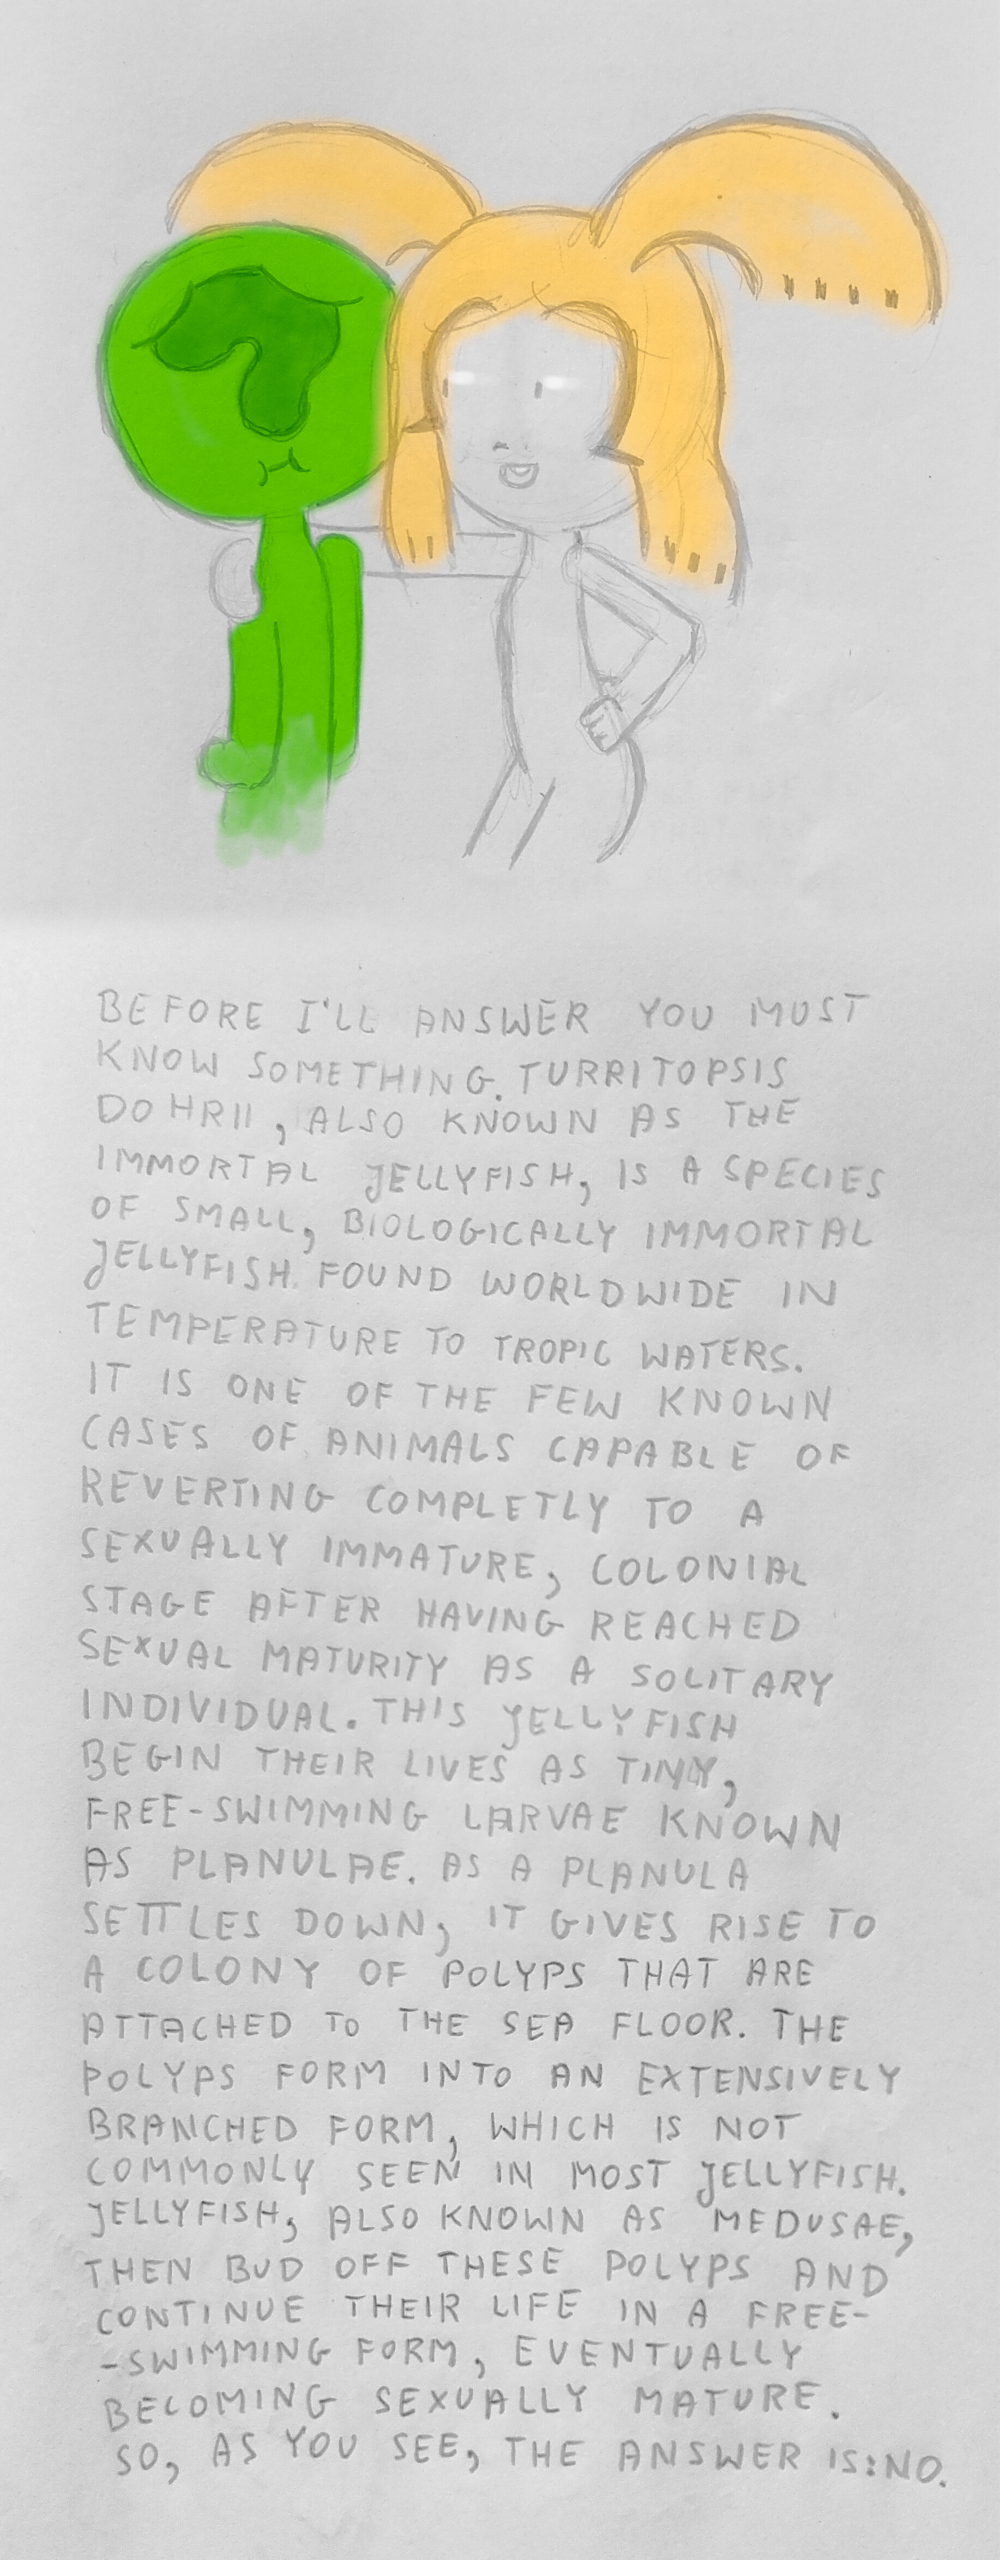 BEFORE I'LL ANSWER YOU MUST
KNOW SOMETHING. TURRITOPSIS
DOHRII, ALSO KNOWN AS THE
IMMORTAL JELLYFISH, IS A SPECIES
OF SMALL, BIOLOGICALLY IMMORTAL
JELLYFISH FOUND WORLDWIDE IN
TEMPERATURE TO TROPIC WATERS.
IT IS ONE OF THE FEW KNOWN
CASES OF ANIMALS CAPABLE OF
REVERTING COMPLETLY TO A
SEXUALLY IMMATURE, COLONIAL
STAGE AFTER HAVING REACHED
SEXUAL MATURITY AS A SOLITARY
INDIVIDUAL. THIS JELLYFISH
BEGIN THEIR LIVES AS TINY,
FREE-SWIMMING LARVAE KNOWN
AS PLANULAE. AS A PLANULA
SETTLES DOWN, IT GIVES RISE TO
A COLONY OF POLYPS THAT ARE
ATTACHED TO THE SEA FLOOR. THE
POLYPS FORM INTO AN EXTENSIVELY
BRANCHED FORM, WHICH IS NOT
COMMONLY SEEN IN MOST JELLYFISH.
JELLYFISH, ALSO KNOWN AS MEDUSAE,
THEN BUD OFF THESE POLYPS AND
CONTINUE THEIR LIFE IN A FREE-
-SWIMMING FORM, EVENTUALLY
BECOMING SEXUALLY MATURE.
SO, AS YOU SEE, THE ANSWER IS:NO.